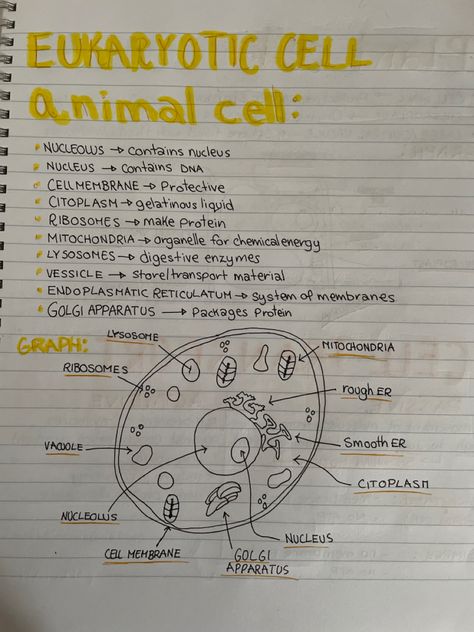 EUKARYOTIC CELL
animal cell:
NUCLEOLUS → contains nucleus
NUCLEUS → contains DNA
CELL MEMBRANE → Protective
CITOPLASM → gelatinous liquid
RIBOSOMES → make Protein
MITOCHONDRIA → organelle for chemical energy
LYSOSOMES → digestive enzymes
VESSICLE → store/transport material
ENDOPLASMATIC RETICULATUM → system of membranes
GOLGI APPARATUS → Packages Protein
GRAPH:
LYSOSOME
MITOCHONDRIA
RIBOSOMES
rough ER
VACUOLE
Smooth ER
CITOPLASM
NUCLEOLUS
NUCLEUS
CELL MEMBRANE
GOLGI
APPARATUS